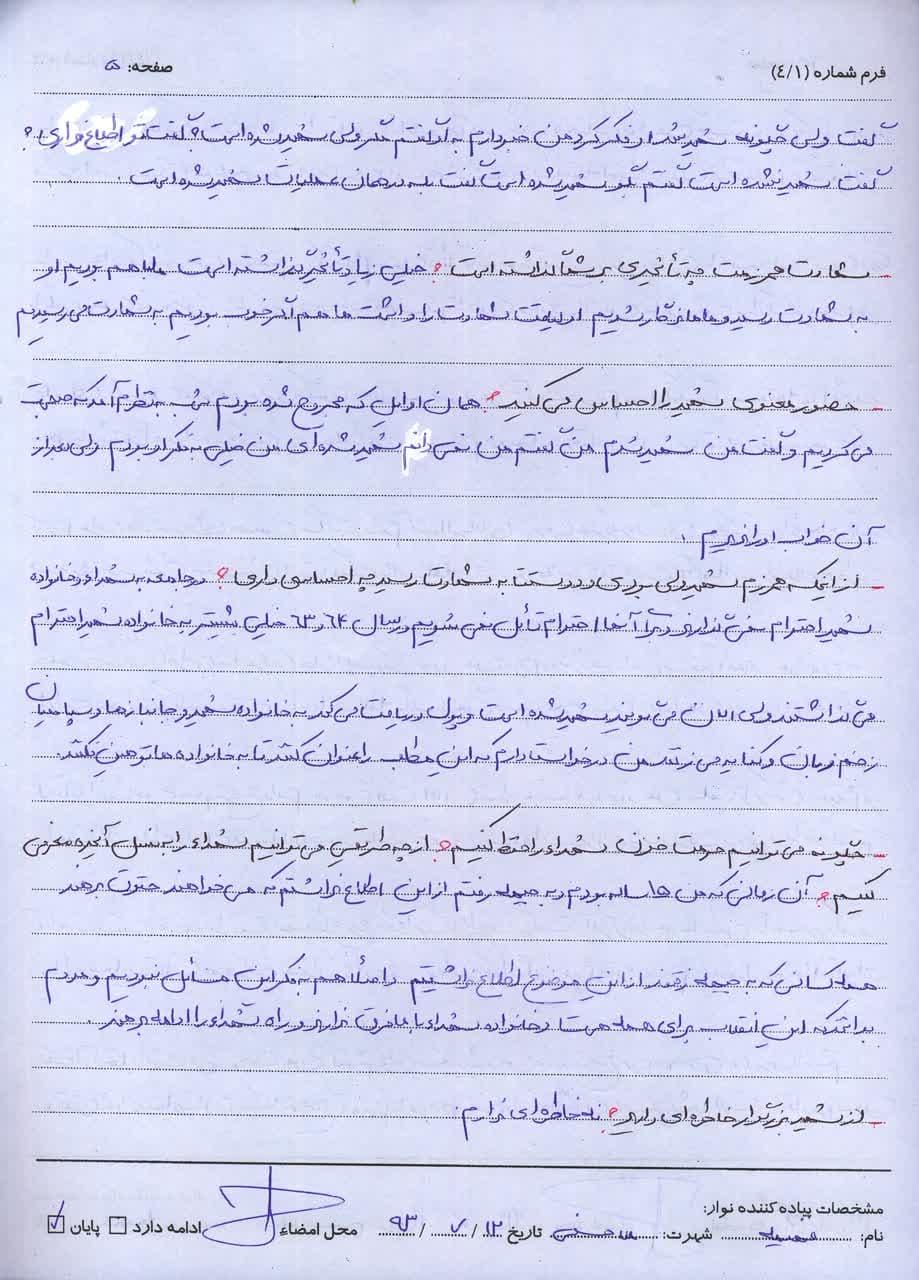 فرم شماره (٤/١) صفحه: ۵
گفت ولی چگونه شهید شد او فکر کرد من خبر دارم به او گفتم مگر ولی شهید شده است؟ گفت تو اطلاع داری؟
گفت شهید نشده است گفتم بگو شهید شده است گفت بله در همان عملیات شهید شده است.
- شهادت همرزمت چه تأثیری بر شما گذاشته است؟ خیلی زیاد تأثیر گذاشته است. ما با هم بودیم او
به شهادت رسید و ما ماندگار شدیم او لیاقت شهادت را داشت ما هم اگر خوب بودیم به شهادت می رسیدیم
- حضور معنوی شهید را احساس می کنید؟ همان اوایل که مجروح شده بودم شب به نظرم آمد که صحبت
می کردیم و گفت من شهید شدم من گفتم من نمی دانم شهید شده ای من خیلی به فکر او بودم ولی بعد از
آن خواب او را ندیدم.
- از اینکه همرزم شهید ولی بودی و دوستت به شهادت رسید چه احساسی داری؟ در جامعه به شهداء و خانواده
شهید احترام نمی گذارند و برای آنها احترام قائل نمی شویم در سال ۶۴ و ۶۳ خیلی بیشتر به خانواده شهید احترام
می گذاشتند ولی الان می گویند شهید شده است و پول دریافت می کند به خانواده شهید و جانبازها و سپاهیان
زخم زبان و کنایه می زنند من درخواست دارم که این مطلب را عنوان کنند تا به خانواده ها توهین نکنند.
- چگونه می توانیم حرمت خون شهداء را حفظ کنیم؟ از چه طریقی می توانیم شهداء را به نسل آینده معرفی
کنیم؟ آن زمانی که من ۱۵ ساله بودم و به جبهه رفتم از این اطلاع نداشتم که می خواهند حقوق بدهند
همه کسانی که به جبهه رفتند از این موضوع اطلاع نداشتیم و اصلاً هم به فکر این مسائل نبودیم و مردم
بدانند که این انقلاب برای همه هست و خانواده شهداء با ما فرق ندارند و راه شهداء را ادامه بدهند.
- از شهید برزگر خاطره ای دارید؟ نه خاطره ای ندارم.
مشخصات پیاده کننده نوار:
نام: شهرت: تاریخ ۱۲ / ۷ / ۹۳ محل امضاء ادامه دارد پایان ✓